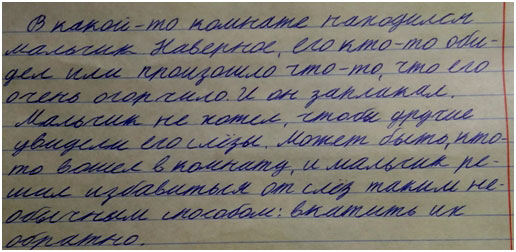 В какой-то комнате находился
мальчик. Наверное, его кто-то оби-
дел или произошло что-то, что его
очень огорчило. И он заплакал.
Мальчик не хотел, чтобы другие
увидели его слёзы. Может быть, кто-
то вошел в комнату, и мальчик ре-
шил избавиться от слёз таким не-
обычным способом: вкатить их
обратно.